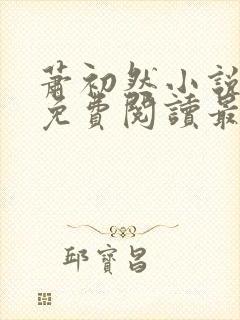 蕭初然小說
免費閱讀最
邱寶昌